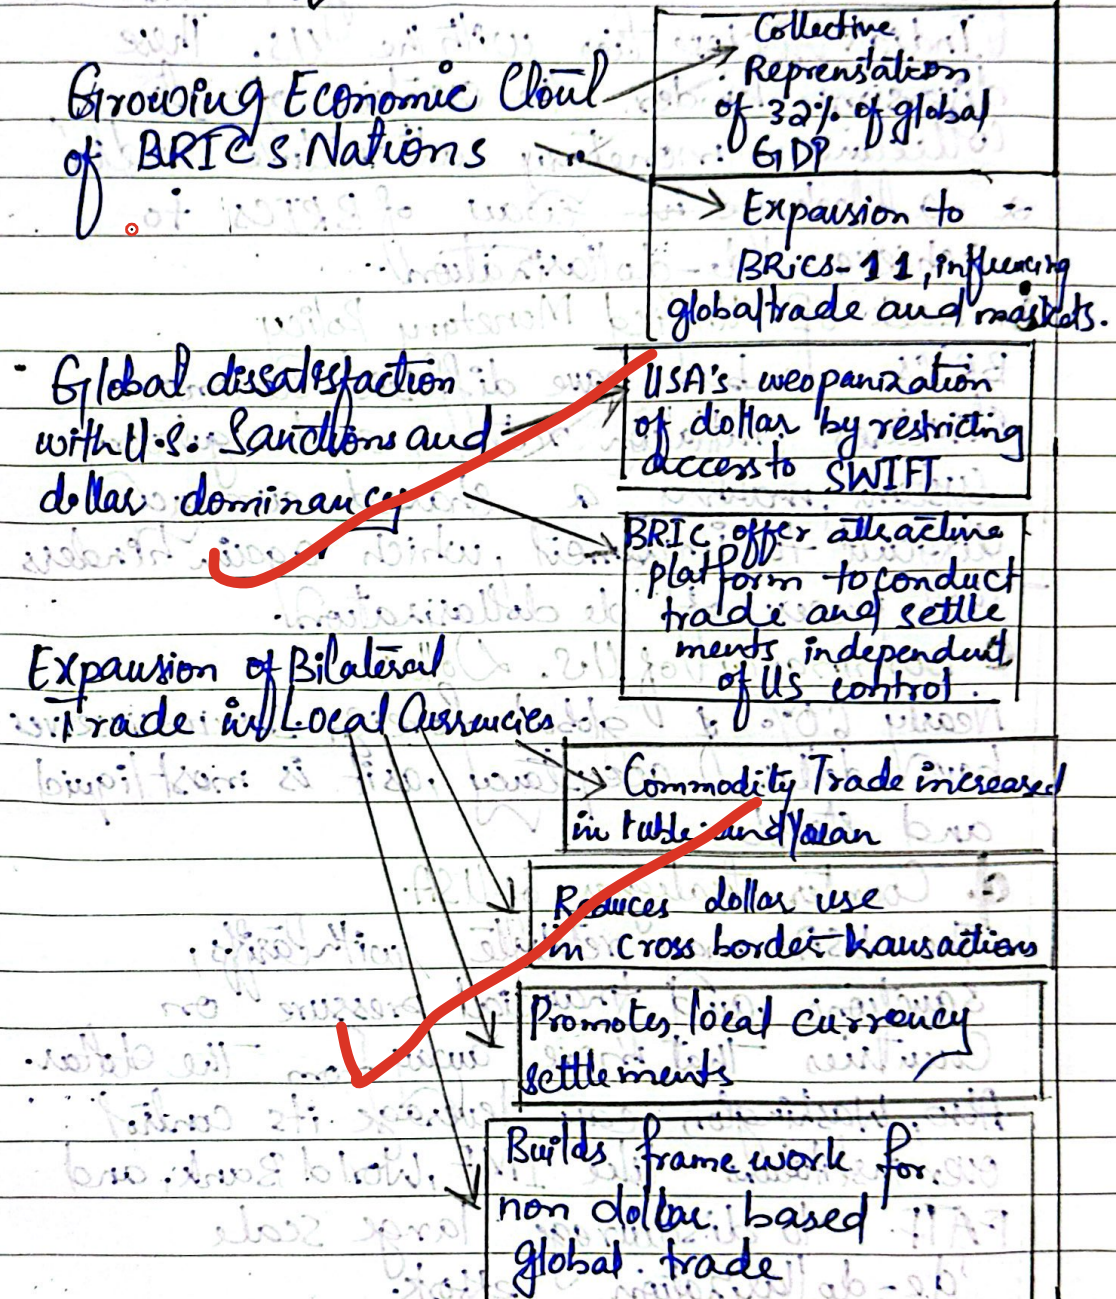 Growing Economic Clout
of BRICS Nations
Collective
Reprenstation
of 32% of global
GDP
Expansion to
BRICS-11, influencing
global trade and markets.
Global dissatisfaction
with U.S. Sanctions and
dollar dominancy
USA's weopanization
of dollar by restricting
access to SWIFT
BRIC offer attractive
platform to conduct
trade and settle
ments independent
of US control.
Expansion of Bilateral
Trade in Local Currencies
Commodity Trade increased
in ruble and Yuan
Reduces dollar use
in cross border transactions
Promotes local currency
settlements
Builds frame work for
non dollar based
global trade